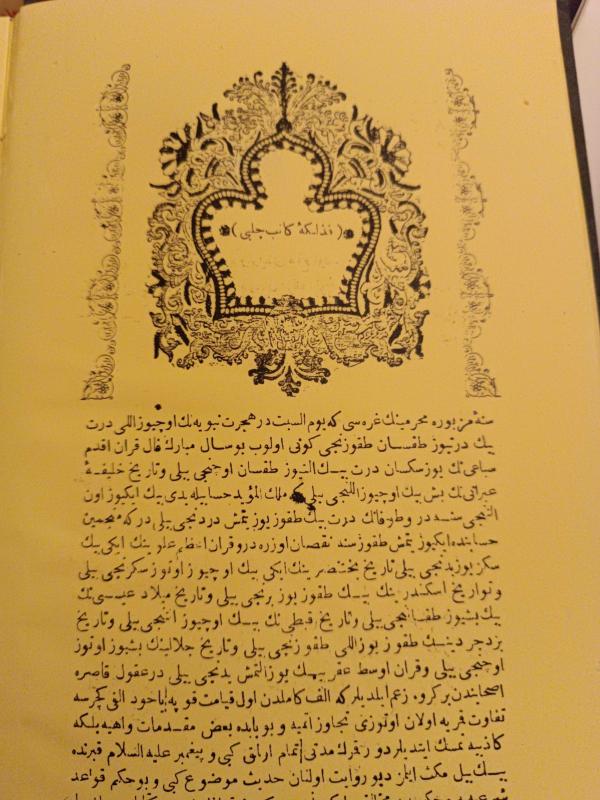 ( فذلكهٔ كاتب چلبی )
سنهٔ مزبوره محرمينك غره سی كه يوم السبت در هجرت نبويه نك اوچيوز اللی درت
بيك درتيوز طقسان طقوزنجی كونی اولوب بو سال مبارك فال قران اقدم
سباعی نك يوز سكسان درت بيك التيوز طقسان اوچنجی ييلی وتاريخ خليقهٔ
عبرانی نك بش بيك اوچيوز اللنجی ييلی كه ملك المؤيد حسابيله يدی بيك ايكيوز اون
التنجی سنه در وطوفانك درت بيك طقوز يوز يتمش دردنجی ييلی در كه منجمين
حسابنده ايكيوز يتمش طقوز سنه نقصان اوزره در وقران اعظم علوينك ايكی بيك
سكز يوز يدنجی ييلی تاريخ بختنصرينك ايكی بيك اوچيوز اوتوز سكزنجی ييلی
وتواريخ اسكندرينك بيك طقوز يوز برنجی ييلی وتاريخ ميلاد عيسی نك
بيك بشيوز طقسانجی ييلی وتاريخ قبطی نك بيك اوچيوز التنجی ييلی وتاريخ
يزدجردينك طقوز يوز اللی طقوزنجی ييلی وتاريخ جلالينك بشيوز اوتوز
اوچنجی ييلی وقران اوسط عقربينك يوز التمش يدنجی ييلی در عقول قاصره
اصحابندن بر كروه زعم ايلديلر كه الف كاملدن اول قيامت قوپه ياخود الفی كچرسه
تفاوت قمريه اولان اوتوزی تجاوز ائميه و بو بابده بعض مقدمات واهيه بلكه
كاذبه يه تمسك ايتديلر دور قمرك مدتی تمام ارتق كبی و پيغمبر عليه السلام قبرنده
بيك ييل مكث ايلز ديو روايت اولنان حديث موضوع كبی و بو حكم قواعد